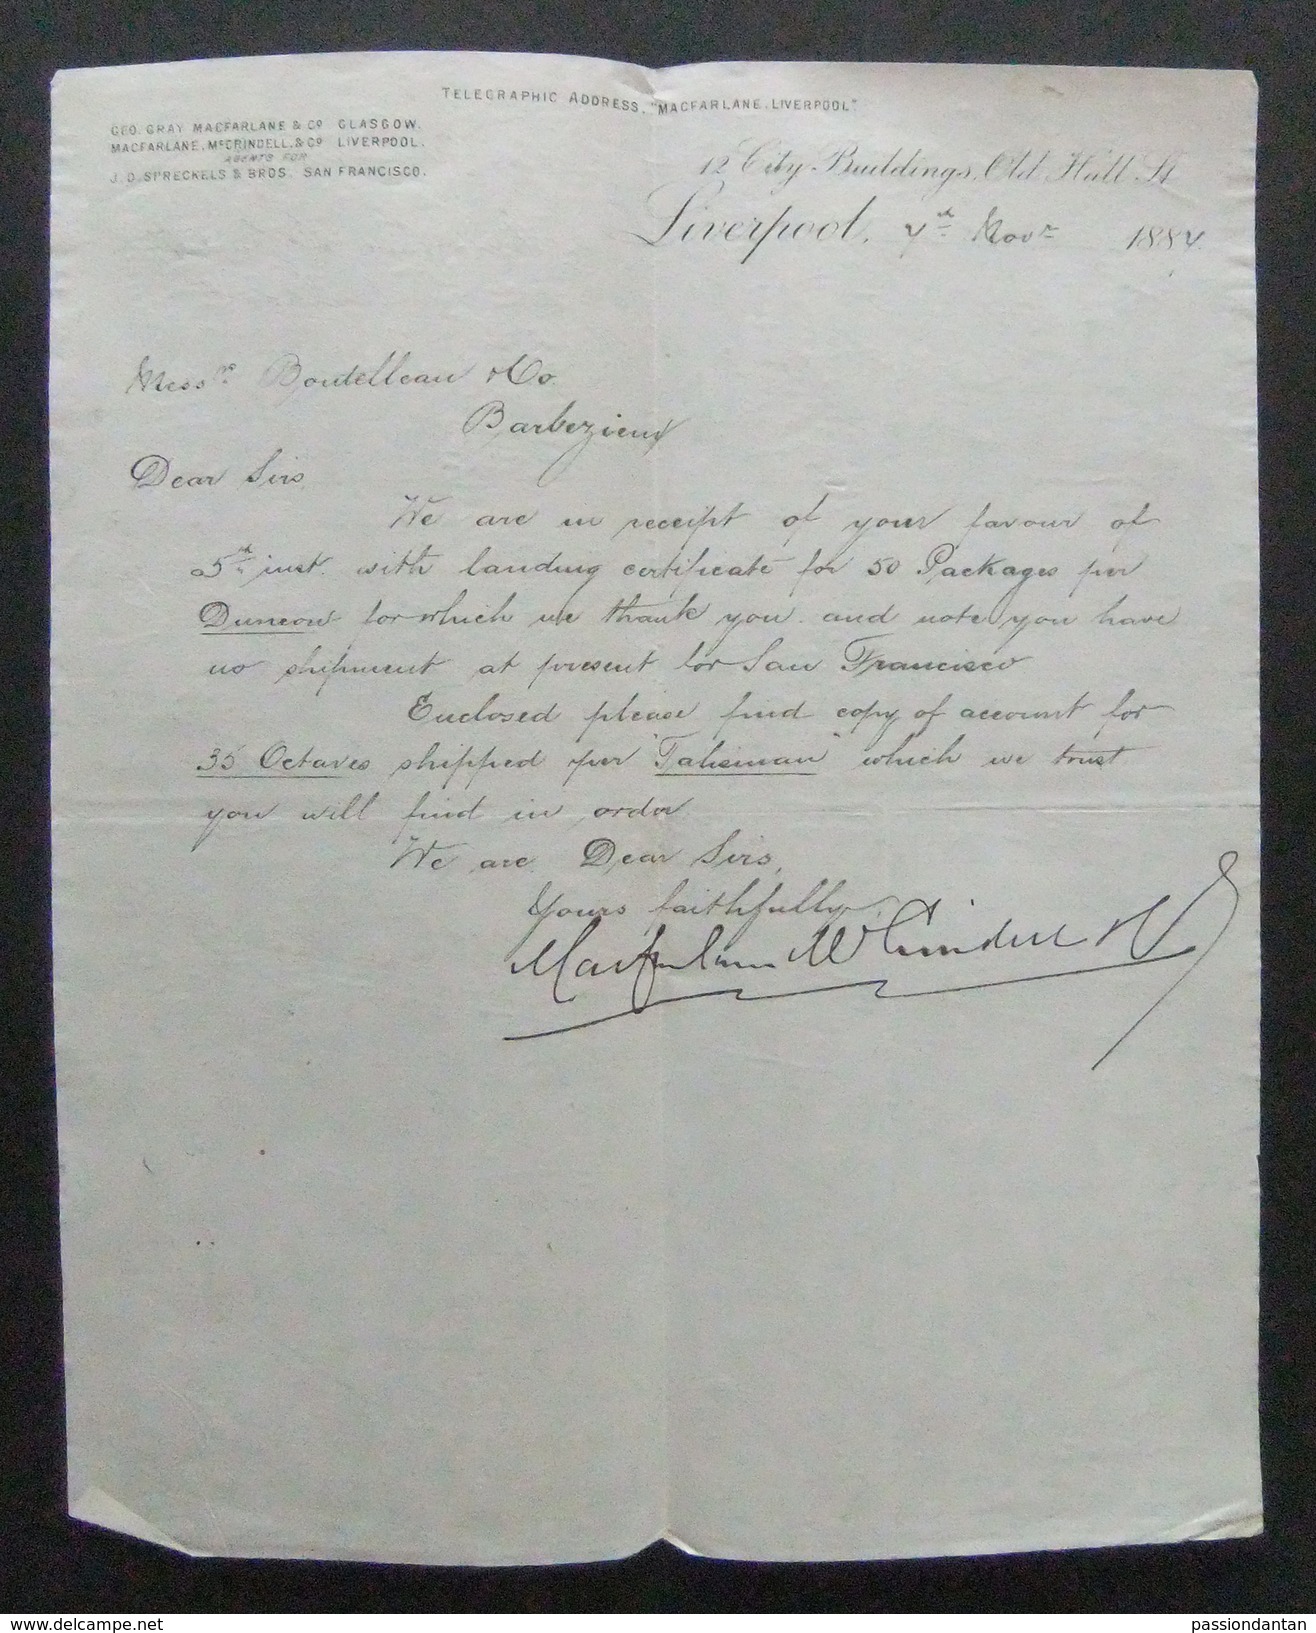 TELEGRAPHIC ADDRESS, "MACFARLANE, LIVERPOOL"
GEO. GRAY MACFARLANE & Co GLASGOW.
MACFARLANE, McCRINDELL, & Co LIVERPOOL.
AGENTS FOR
J. D. SPRECKELS & BROS. SAN FRANCISCO.
12 City Buildings, Old Hall St
Liverpool, 7th Novr 1887
Messrs Boutelleau & Co.
Barbezieux
Dear Sirs
We are in receipt of your favour of
5th inst. with landing certificate for 50 Packages per
Duncow for which we thank you. and note you have
no shipment at present for San Francisco
Enclosed please find copy of account for
35 Octaves shipped per "Talisman" which we trust
you will find in order
We are. Dear Sirs,
Yours faithfully
Macfarlane McCrindell & Co
delcampe.net
passiondantan